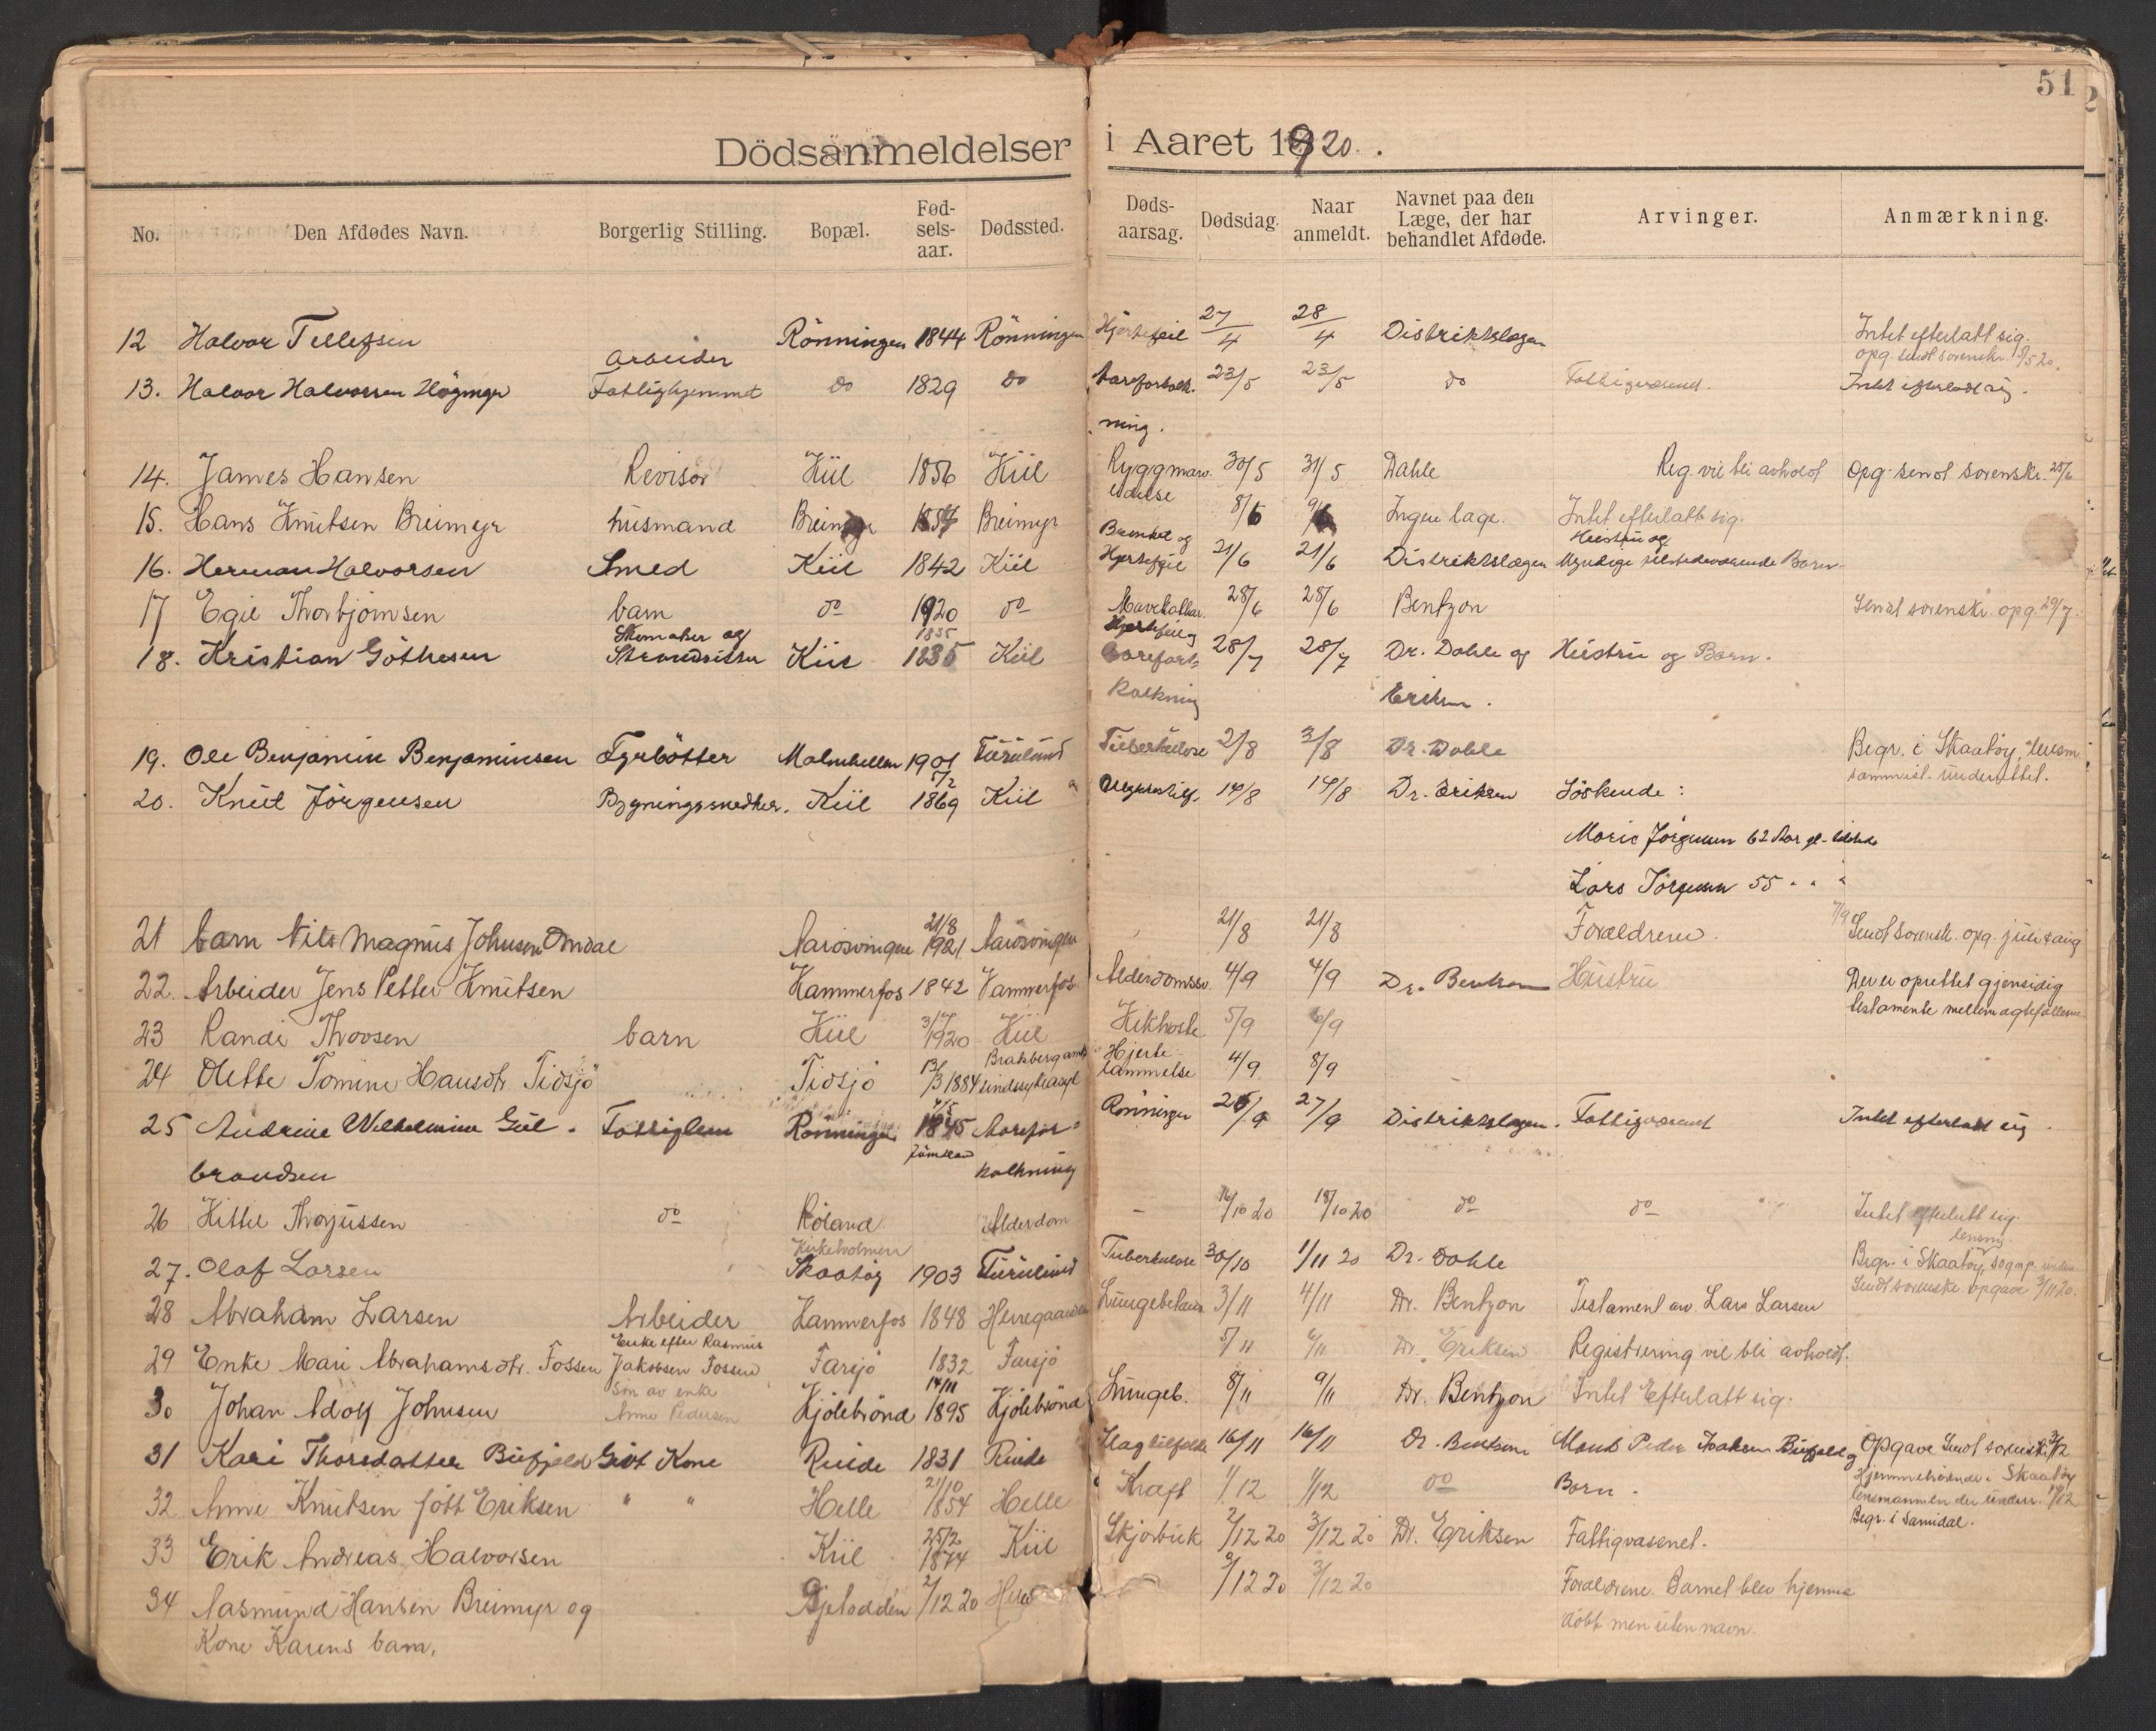 51
Dödsanmeldelser i Aaret 1920.
No. Den Afdødes Navn. Borgerlig Stilling. Bopæl. Fødselsaar. Dødssted. Dødsaarsag. Dødsdag. Naar anmeldt. Navnet paa den Læge, der har behandlet Afdøde. Arvinger. Anmærkning.
12 Halvor Tellefsen Rönningen 1844 Rönningen Hjertefeil 27/4 28/4 Distriktslægen Intet efterlatt sig.
Arbeider opg. sendt sorenskr.
13. Halvor Halvorsen Fattighjemmet do 1829 do Aareforkalk- 23/5 23/5 do Fattigvæsenet. Intet efterladt sig.
ning.
14. James Hansen Revisor Kiil 1856 Kiil Ryggmarv 30/5 31/5 Dahle Reg. vil bli avholdt Opg. sendt sorenskr. 28/6
lidelse
15. Hans Knutsen Breimyr husmand Breimyr 1857 Breimyr 8/6 9/6 Ingen læge. Intet efterlatt sig.
Hustru og
16. Herman Halvorsen Smed Kiil 1842 Kiil Hjertefeil 21/6 21/6 Distriktslægen Myndige tilstedeværende Børn
17 Egil Thorbjörnsen barn do 1920 do Mavekatbar. 28/6 28/6 Bentzon Sendt sorenskr. opg. 29/7
Skomaker og 1835 Hjertefeil og
18. Kristian Göthesen Strandsitter Kiil 1835 Kiil Aarefor- 28/7 28/7 Dr. Dahle og Hustru og Børn.
kalkning Eriksen.
19. Ole Benjamin Benjaminsen Fyrbötter Malmhellen 1901 Furulund Tuberkulose 2/8 3/8 Dr. Dahle Begr. i Skaatöy, lensm.
5/2 sammist. underrettet.
20. Knut Jörgensen Bygningssnedker. Kiil 1869 Kiil 14/8 14/8 Dr. Eriksen Söskende:
Marie Jörgensen 62 Aar gl.
Lars Jörgensen 55 " "
21/8 7/9
21 barn Nils Magnus Johnsen Omdal Aarösvingen 1921 Aarösvingen 21/8 21/8 Forældrene. Sendt sorensk. opg. juli & aug
22. Arbeider Jens Petter Knutsen Kammerfos 1842 Kammerfos Alderdomssv. 4/9 4/9 Dr. Bentzon Hustru Der er oprettet gjensidig
testamente mellem ægtefællerne
23 Randi Thovsen barn Kiil 3/7 1920 Kiil Kikhoste 5/9 6/9
Hjerte
24 Olette Tomine Hansdtr. Tidsjö Tidsjö 13/3 1884 sindssykeasyl lammelse 4/9 8/9
25 Andrine Wilhelmine Gul- Fattiglem Rönningen 1845 Aarefor- Rönningen 26/9 27/9 Distriktslægen. Fattigvæsenet Intet efterladt sig.
brandsen kalkning
26 Kittel Thorjussen do Röland Alderdom - 16/10 20 18/10 20 do do Intet efterlatt sig.
Kirkeholmen lensm.
27. Olaf Larsen Skaatöy 1903 Furulund Tuberkulose 30/10 1/11 20 Dr. Dahle Begr. i Skaatöy
Sendt sorenskr. opgave 3/11 20.
28 Abraham Larsen Arbeider Kammerfos 1848 Lungebetænd 3/11 4/11 Dr. Bentzon Testament av. Lars Larsen
Enke efter Rasmus
29 Enke Mari Abrahamsdtr. Fossen Jakobsen Fossen Farsjö 1832 Farsjö 5/11 6/11 Dr. Eriksen Registrering vil bli avholdt.
Sön av enke 14/11
30 Johan Adolf Johnsen Anne Pedersen Kjölebrönd 1895 Kjölebrönd Lungeb. 8/11 9/11 Dr. Bentzon Intet Efterlatt sig.
31 Kari Thorsdatter Bufjeld Gift Kone Rinde 1831 Rinde Slagtilfelde 16/11 16/11 Dr. Bentzon Mand Peder Bufjeld og Opgave Sendt sorenskr.
21/10 Hjemmehörende i Skaatöy
32 Anne Knutsen fött Eriksen " " Helle 1854 Helle Kræft 1/12 1/12 do Børn. lensmannen der underr.
25/2 Begr. i Sannidal.
33 Erik Andreas Halvorsen Kiil 1874 Kiil Skjørbuk 2/12 20 3/12 20 Dr. Eriksen Fattigvæsenet.
34 Aasmund Hansen Breimyr og Bjelodden 2/12 20 2/12 20 3/12 20 Forældrene. Barnet blev hjemme
Kone Karens barn. döbt men uten navn.